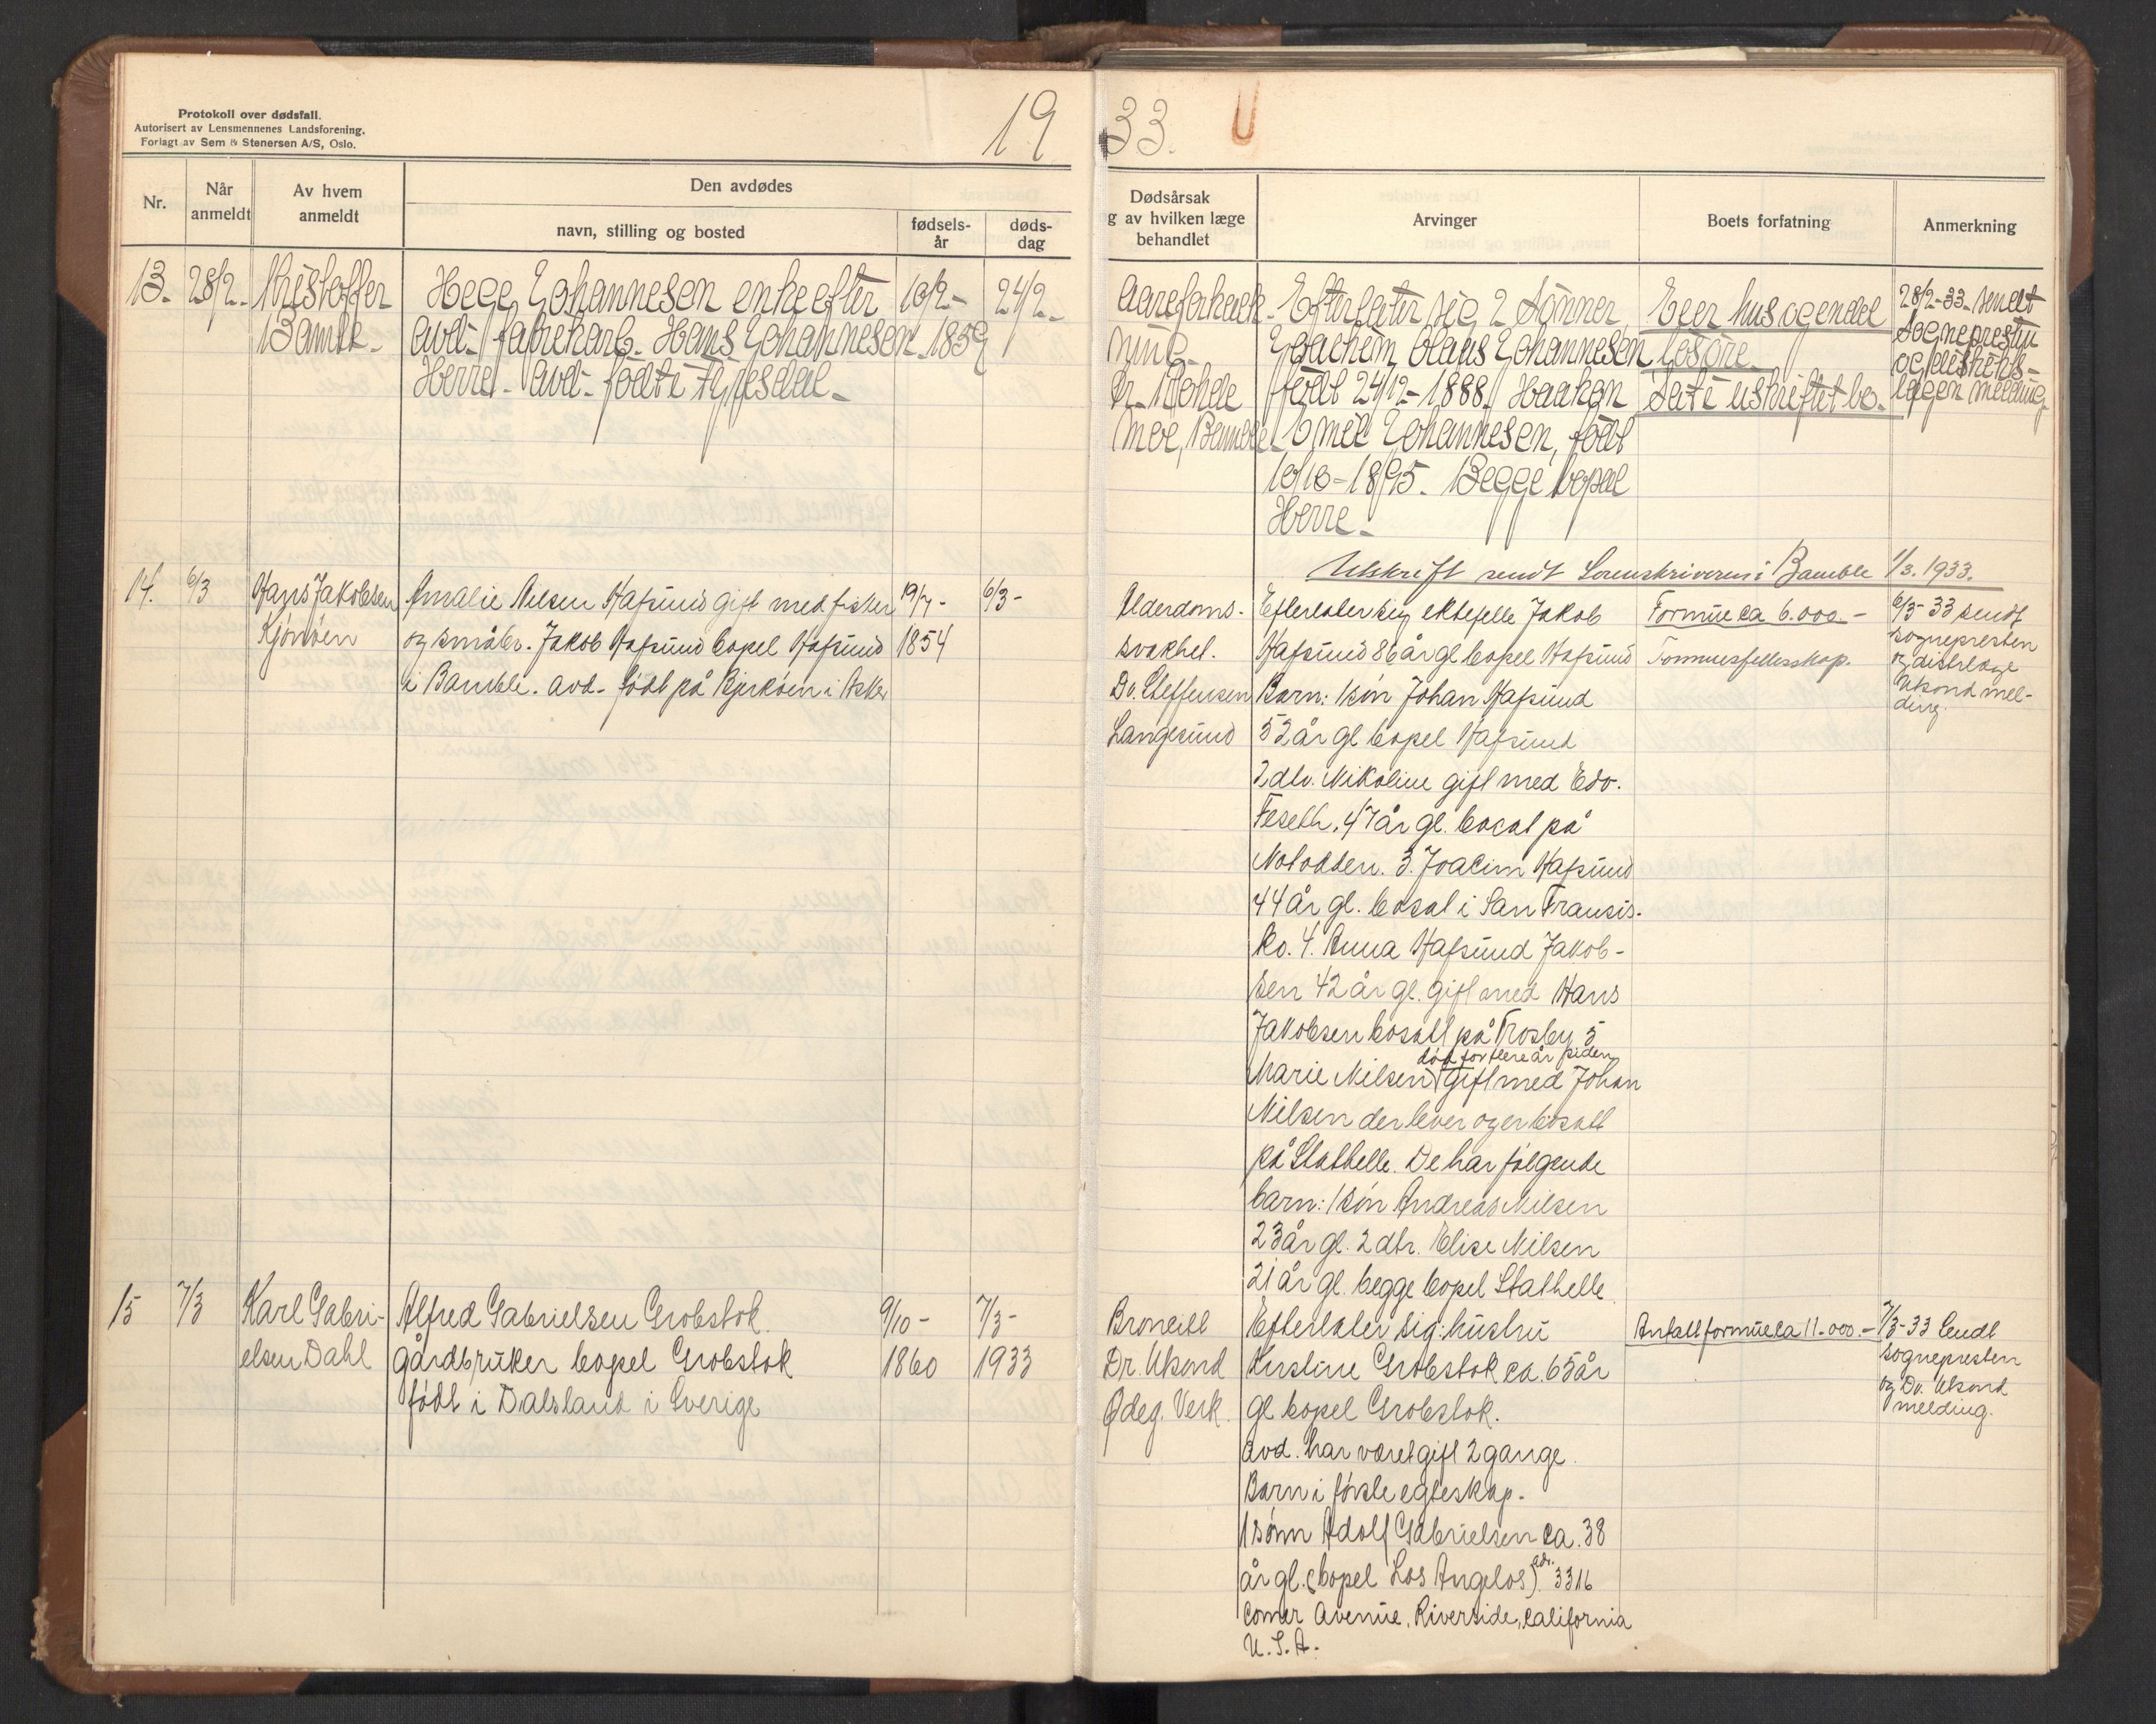 Protokoll over dødsfall.
Autorisert av Lensmennenes Landsforening.
Forlagt av Sem & Stenersen A/S, Oslo.
19
33.
Nr.
Når
anmeldt
Av hvem
anmeldt
Den avdødes
navn, stilling og bosted
fødsels-
år
døds-
dag
Dødsårsak
g av hvilken læge
behandlet
Arvinger
Boets forfatning
Anmerkning
13.
28/2.
Kristoffer
Bamle.
Hege Johannesen enke efter
avd. fabrikarb. Hans Johannesen.
Herre. Avd. født i
10/2-
1859
24/2-
Aareforkalk-
ning.
Dr. Rohde
Moe, Bamble.
Efterlater sig 2 sønner
Joachim Olaus Johannesen
født 24/12-1888. Haakon
Emil Johannesen, født
10/10-1895. Begge bopæl
Herre.
Eier hus og endel
løsøre.
Sat i uskiftet bo.
28/2-33. sendt
sognepresten
og distrikts-
lægen melding
Utskrift sendt Sorenskriveren i Bamble 1/3. 1933.
14.
6/3
Hans Jakobsen
Kjønøen
Amalie Nilsen Hafsund gift med fisker
og småbr. Jakob Hafsund bopel Hafsund
i Bamble. avd. født på Bjerkøen i Asker
19/7-
1854
6/3-
Alderdoms-
svakhet.
Dr. Steffensen
Langesund
Efterlater sig ektefelle Jakob
Hafsund 86 år gl bopel Hafsund
Barn: 1 søn Johan Hafsund
52 år gl bopel Hafsund
2 dtr. Nikoline gift med Edv.
Feseth, 47 år gl. bosat på
Notodden. 3. Joacim Hafsund
44 år gl. bosat i San Fransis-
ko. 4. Anna Hafsund Jakob-
sen 42 år gl. gift med Hans
Jakobsen bosatt på Trosby 5
død for flere år siden
Marie Nilsen gift med Johan
Nilsen der lever og er bosatt
på Stathelle. De har følgende
barn: 1 søn Andreas Nilsen
23 år gl. 2 dtr. Elise Nilsen
21 år gl. begge bopel Stathelle
Formue ca 6.000.-
Formuesfellesskap.
6/3-33 sendt
sognepresten
og distr.læge
Aksond mel-
ding.
15
7/3
Karl Gabri-
elsen Dahl
Alfred Gabrielsen Grobstok
gårdbruker bopel Grobstok
født i Dalsland i Sverige
9/10-
1860
7/3-
1933
Dr. Aksond
Ødeg. Verk.
Efterlater sig: hustru
Kristine Grobstok ca. 65 år
gl bopel Grobstok.
avd. har været gift 2 gange.
Barn i første egteskap.
1 sønn Adolf Gabrielsen ca. 38
år gl. (bopel Los Angelos) adr. 3316
Comer Avenue, Riverside, California
U.S.A.
Antatt formue ca 11.000.-
7/3-33 Sendt
sognepresten
og Dr. Aksond
melding.